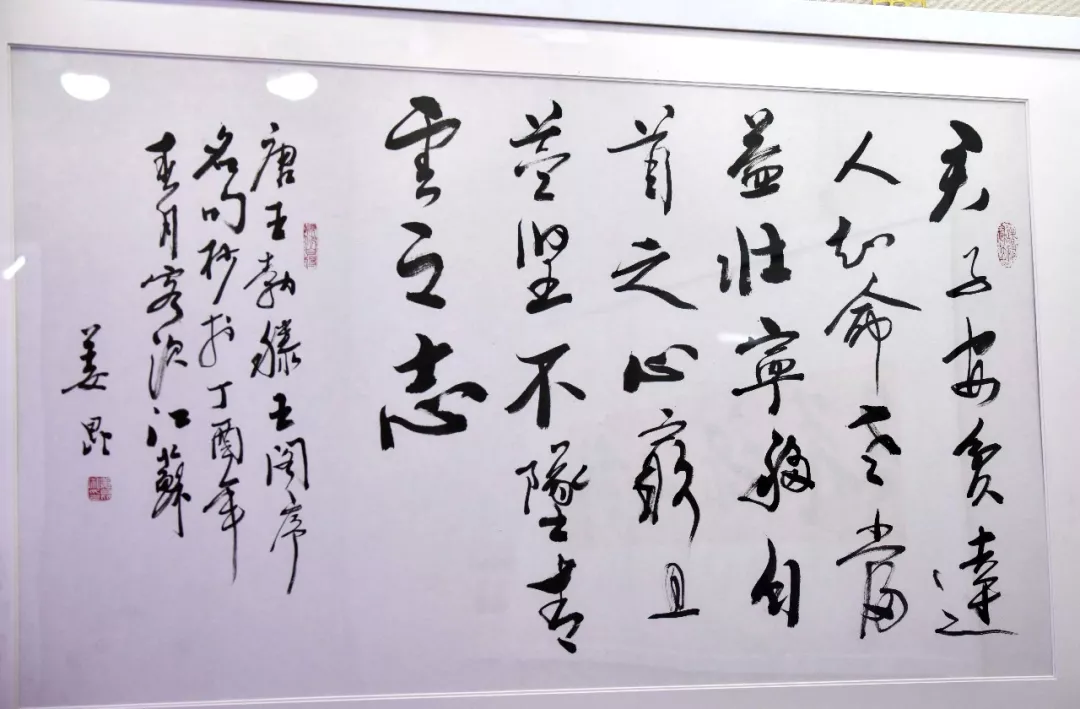 君子安貧達
人知命老當
益壯寧移白
首之心窮且
益堅不墜青
雲之志
唐王勃滕王阁序
名句抄於丁酉年
春月客次江蘇
姜昆